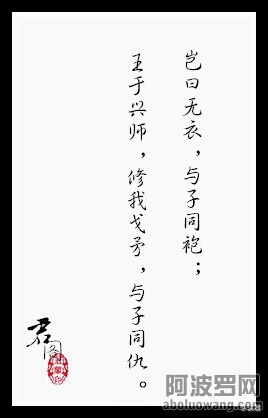 岂曰无衣，与子同袍；
王于兴师，修我戈矛，与子同仇。
君阁
阿波罗网
aboluowang.com